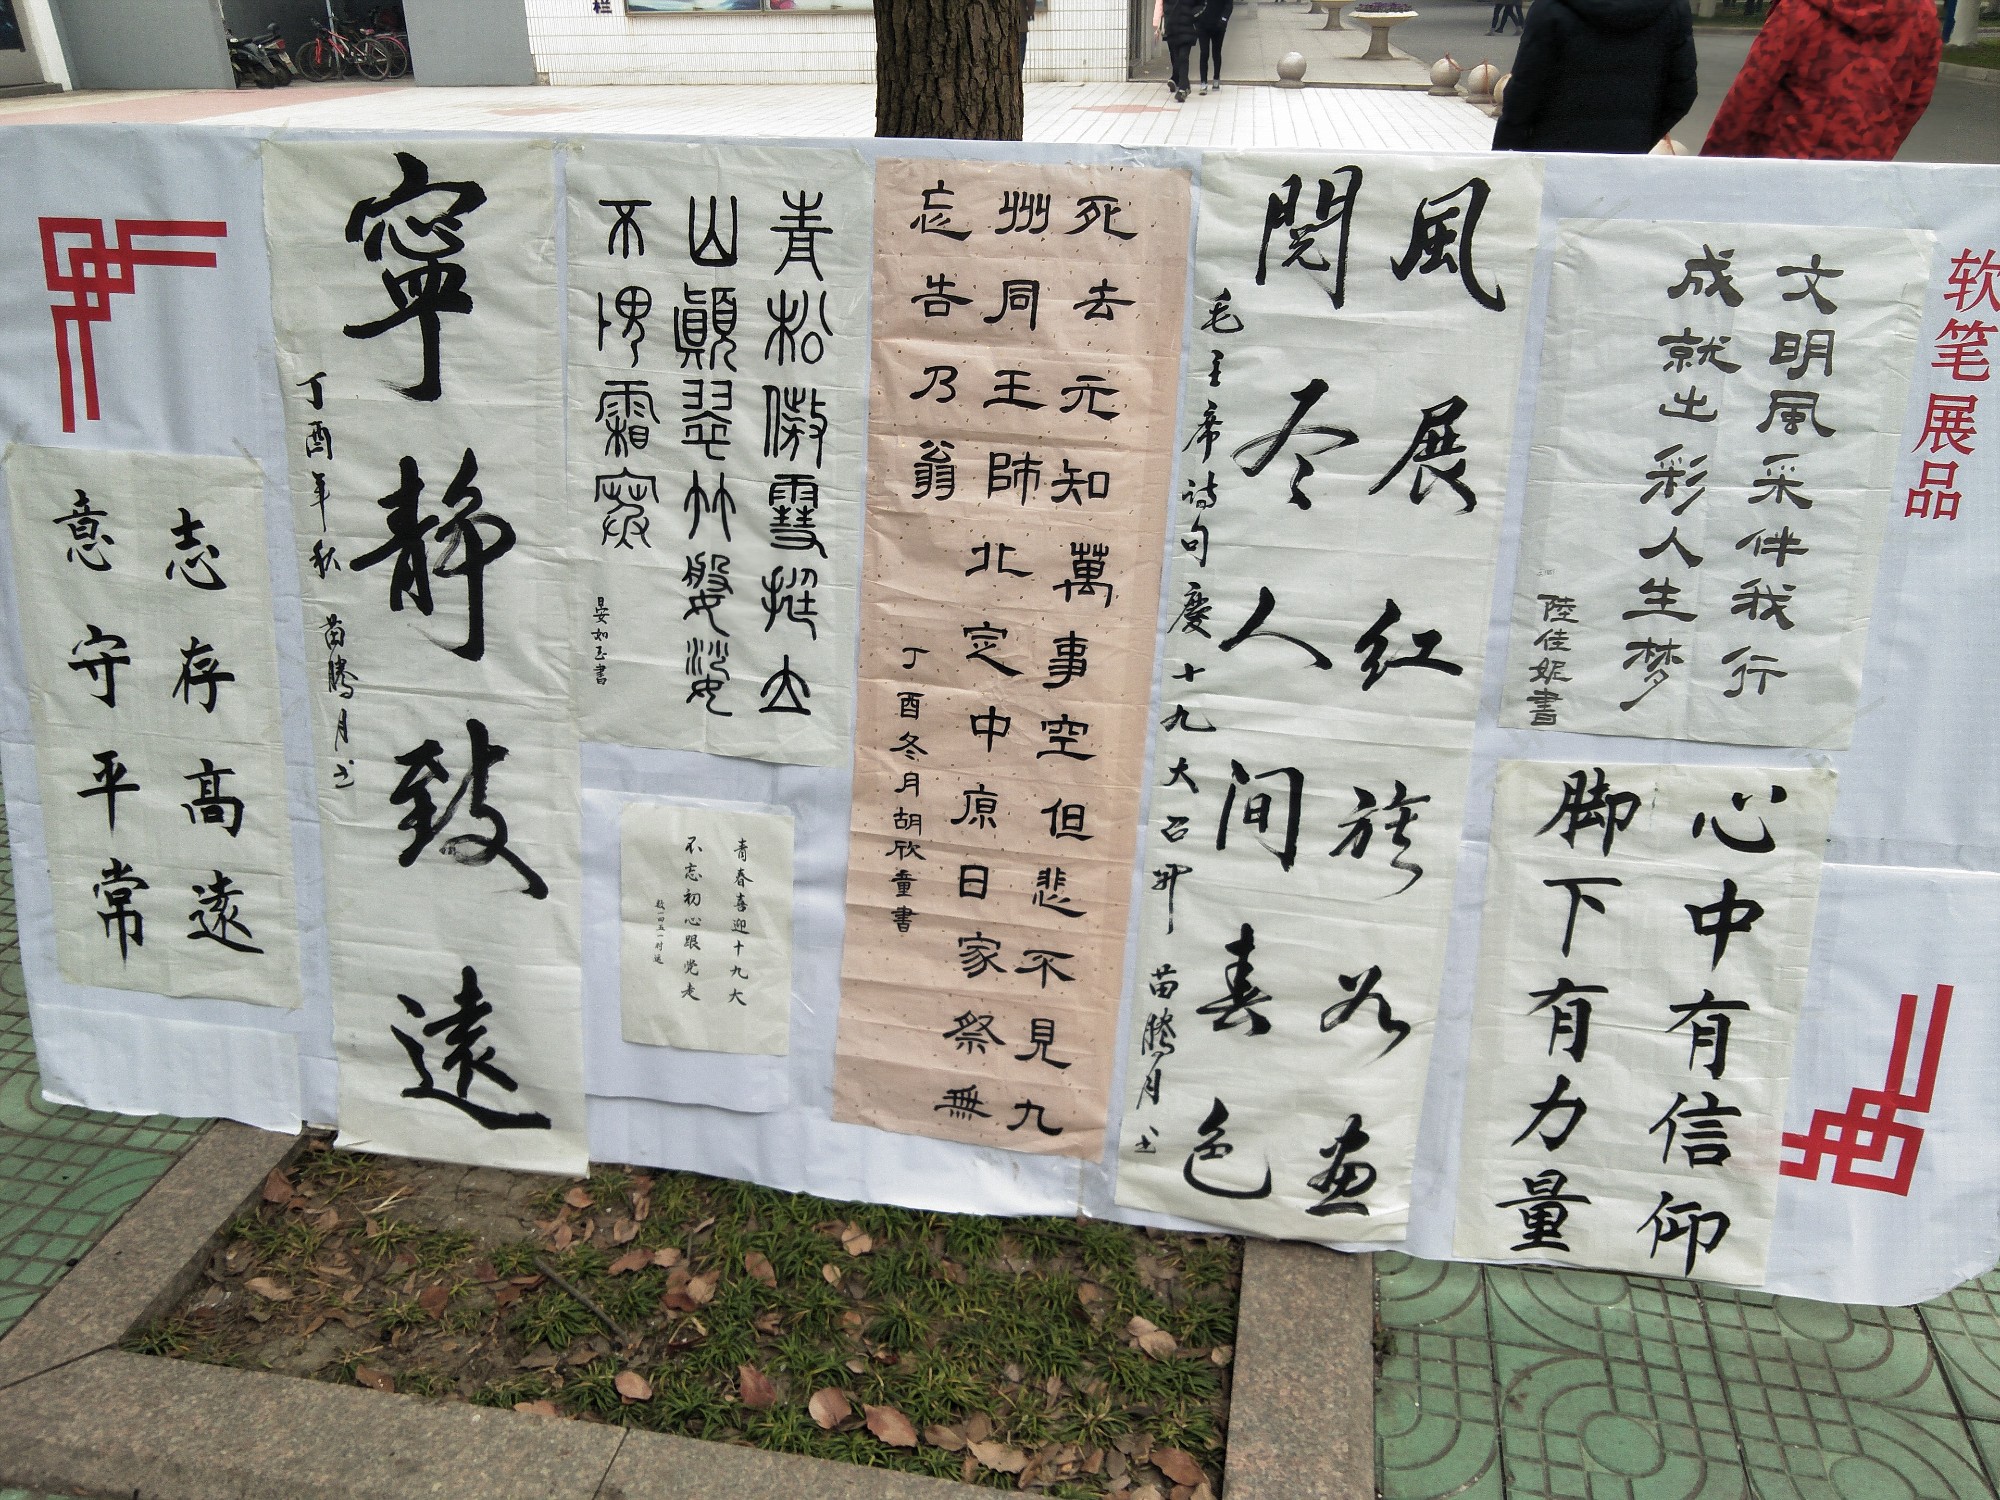 栏
软笔展品
文明風采伴我行
成就出彩人生梦
陸佳妮書
心中有信仰
脚下有力量
風展红旗如画
閲尽人间春色
毛主席诗句慶十九大召开 苗腾月书
死去元知萬事空但悲不見九
州同王師北定中原日家祭無
忘告乃翁
丁酉冬月胡欣童書
青松傲雪挺立
山顛翠竹婆娑
不畏霜寒
晏如玉書
青春喜迎十九大
不忘初心跟党走
寧静致遠
丁酉年秋 苗腾月书
志存高遠
意守平常